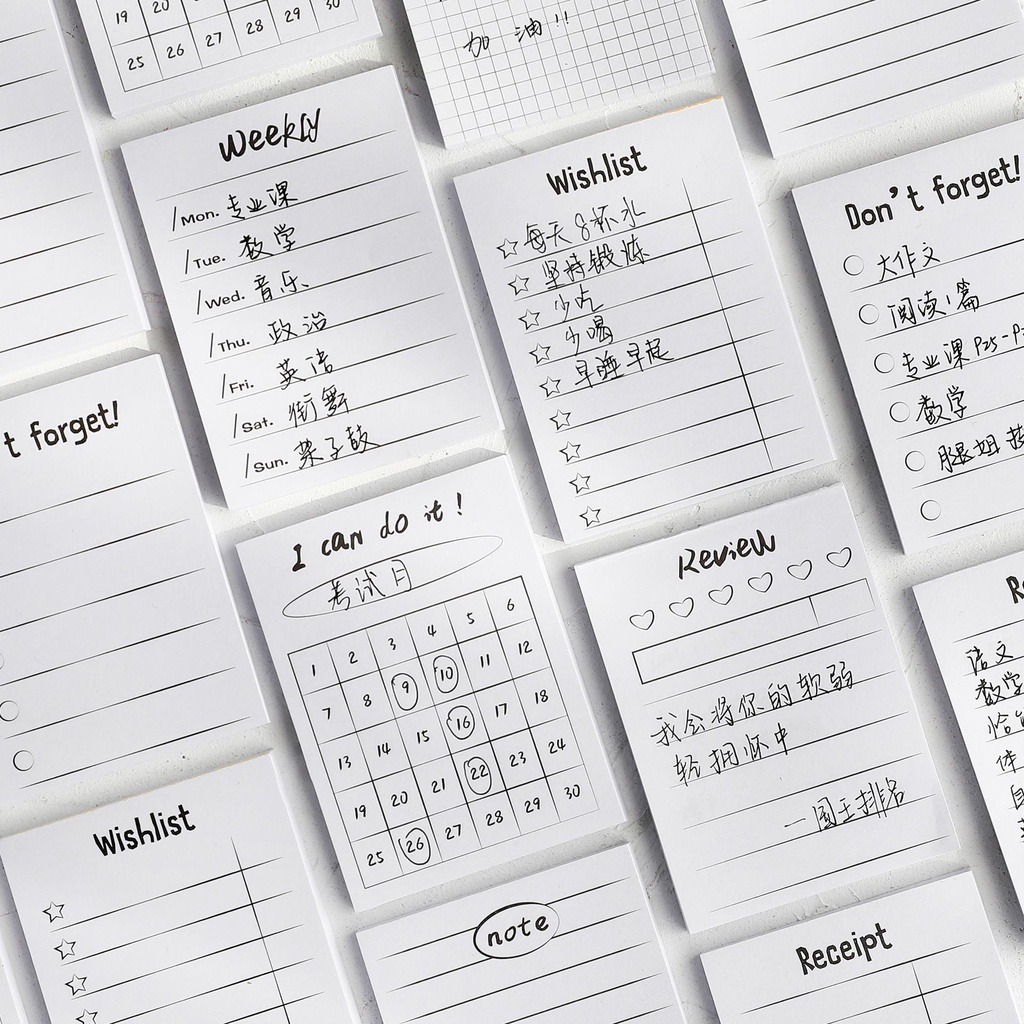 19 20 28 29 30
25 26 27
加油!!
Weekly
/Mon. 专业课
/Tue. 数学
/Wed. 音乐
/Thu. 政治
/Fri. 英语
/Sat. 街舞
/Sun. 架子鼓
Wishlist
每天8杯水
坚持锻炼
少吃
少喝
早睡早起
Don't forget!
大作文
阅读1篇
专业课 P25-P
数学
腿姐
t forget!
I can do it!
考试月
1 2 3 4 5 6
7 8 9 10 11 12
13 14 15 16 17 18
19 20 21 22 23 24
25 26 27 28 29 30
Review
我会将你的软弱
轻拥怀中
—国王排名
R
语文
数学
体
自
Wishlist
note
Receipt